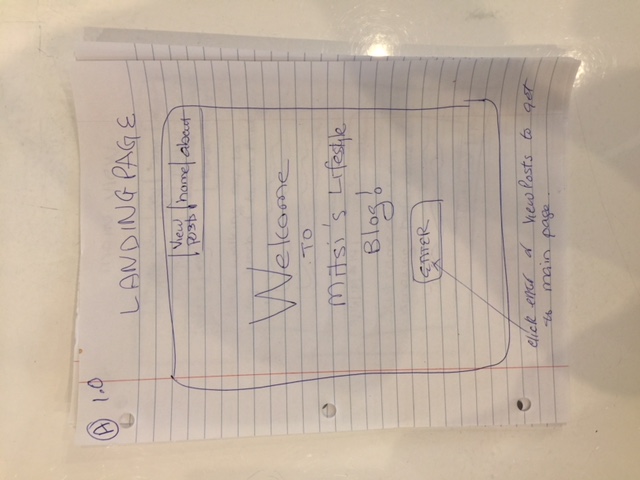 A 1.0
LANDING PAGE
View
posts
home
about
Welcome
TO
Mitsi's Lifestyle
Blog!
ENTER
click enter or View Posts to get
to main page.